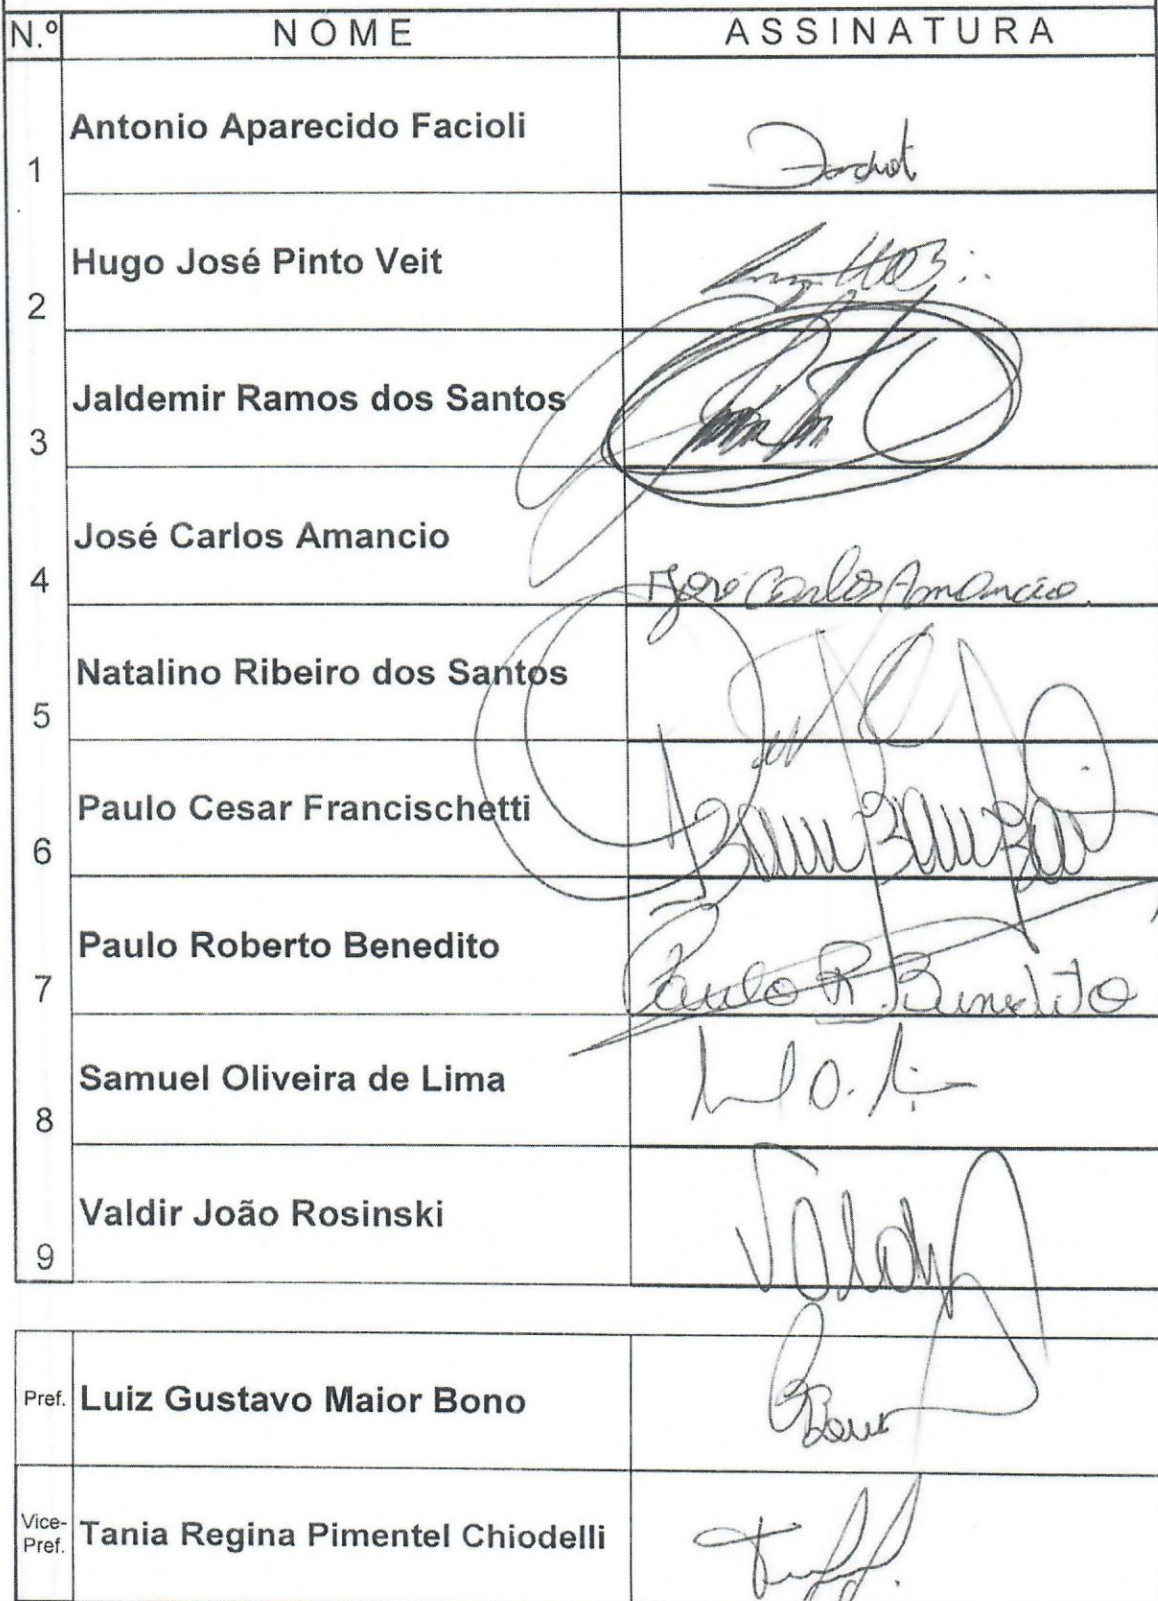 N.º NOME ASSINATURA
1 Antonio Aparecido Facioli
2 Hugo José Pinto Veit
3 Jaldemir Ramos dos Santos
4 José Carlos Amancio José Carlos Amancio
5 Natalino Ribeiro dos Santos
6 Paulo Cesar Francischetti
7 Paulo Roberto Benedito Paulo R. Benedito
8 Samuel Oliveira de Lima
9 Valdir João Rosinski
Pref. Luiz Gustavo Maior Bono
Vice-
Pref. Tania Regina Pimentel Chiodelli